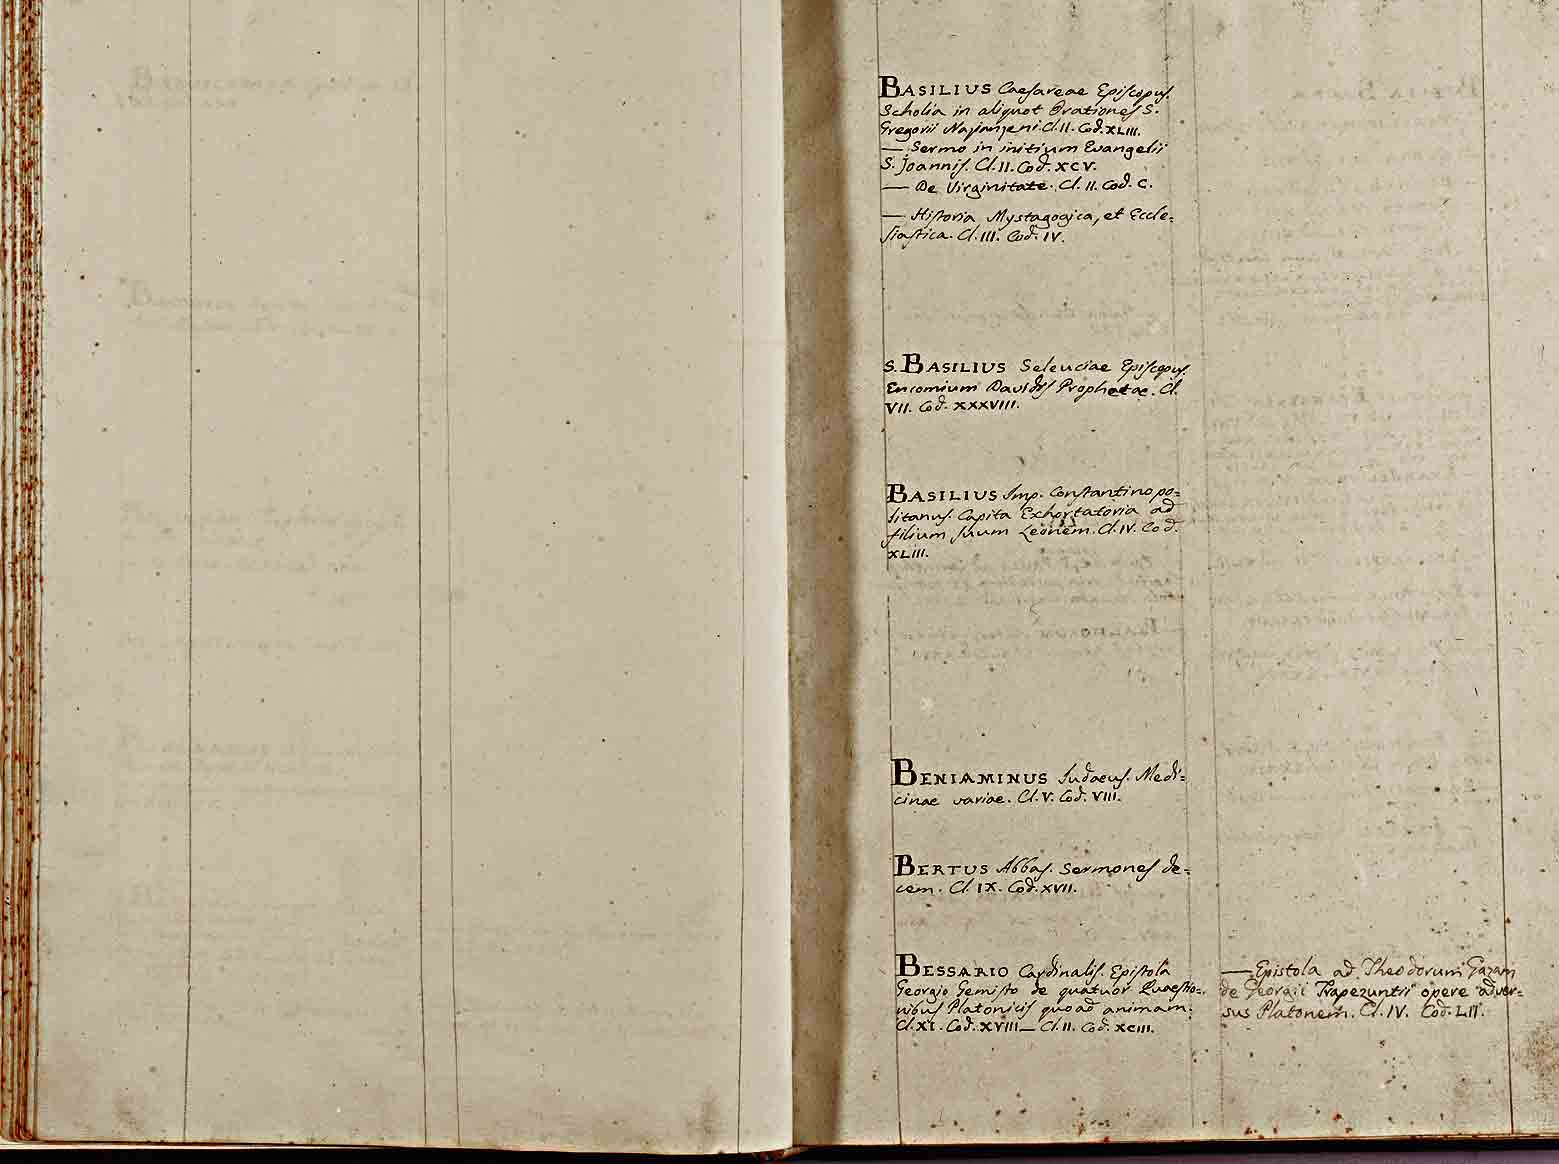 BASILIUS Caesareae Episcopus.
Scholia in aliquot Orationes S.
Gregorii Nazianzeni. Cl. II. Cod. XLIII.
— Sermo in initium Evangelii
S. Joannis. Cl. II. Cod. XCV.
— De Virginitate. Cl. II. Cod. C.
— Historia Mystagogica, et Eccle=
siastica. Cl. III. Cod. IV.
S. BASILIUS Seleuciae Episcopus.
Encomium Davidis Prophetae. Cl.
VII. Cod. XXXVIII.
BASILIUS Imp. Constantinopo=
litanus. Capita Exhortatoria ad
filium suum Leonem. Cl. IV. Cod.
XLIII.
BENIAMINUS Judaeus. Medi=
cinae variae. Cl. V. Cod. VIII.
BERTUS Abbas. Sermones de=
cem. Cl. IX. Cod. XVII.
BESSARIO Cardinalis. Epistola
Georgio Gemisto de quatuor Quaestio=
nibus Platonicis quoad animam.
Cl. XI. Cod. XVIII — Cl. II. Cod. XCIII.
— Epistola ad Theodorum Gazam
de Georgii Trapezuntii opere adver=
sus Platonem. Cl. IV. Cod. LII.